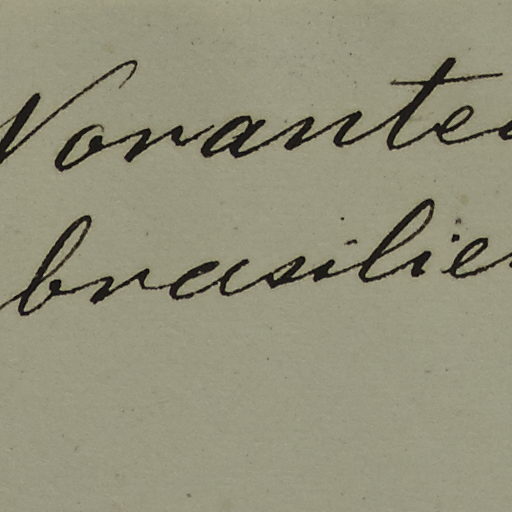 Norantea
brasilien